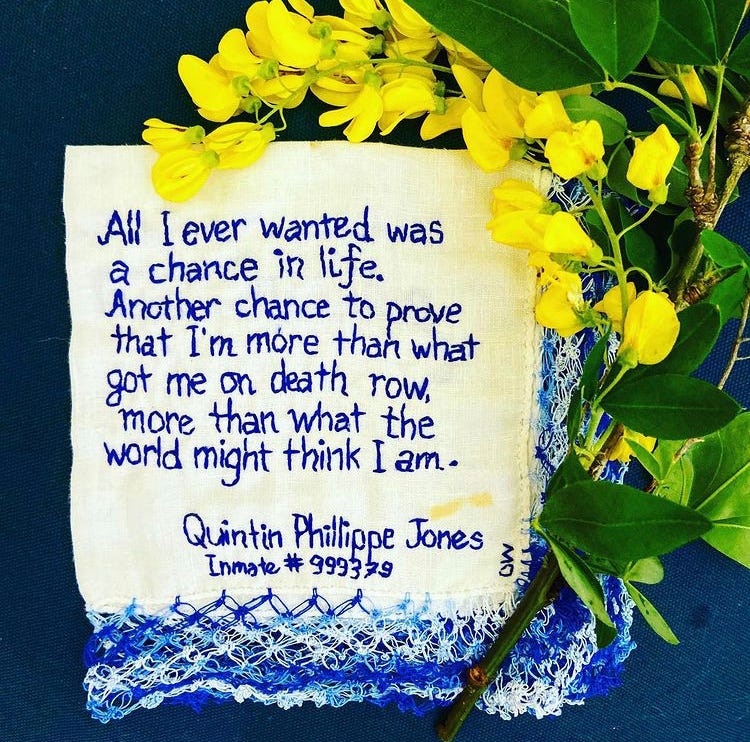 All I ever wanted was
a chance in life.
Another chance to prove
that I'm more than what
got me on death row,
more than what the
world might think I am.
Quintin Phillippe Jones
Inmate # 999379
DW